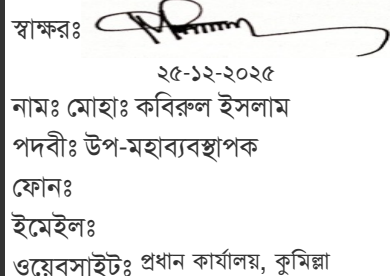 স্বাক্ষরঃ
২৫-১২-২০২৫
নামঃ মোহাঃ কবিরুল ইসলাম
পদবীঃ উপ-মহাব্যবস্থাপক
ফোনঃ
ইমেইলঃ
ওয়েবসাইটঃ প্রধান কার্যালয়, কুমিল্লা